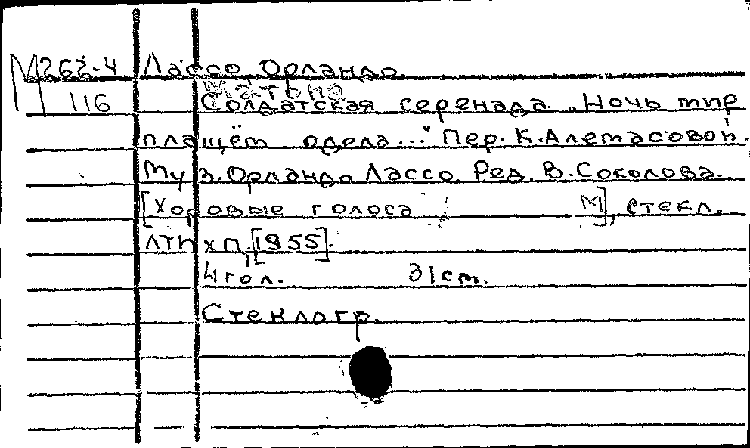 М262-4 Лассо, Орландо.
Матона
116 Солдатская серенада. „Ночь мир
плащём одела..." Пер. К. Алемасовой.
Муз. Орландо Лассо. Ред. В. Соколова.
[Хоровые голоса М], стекл.
ЛТП ХП, [1955].
4 гол. 31 см.
Стеклогр.